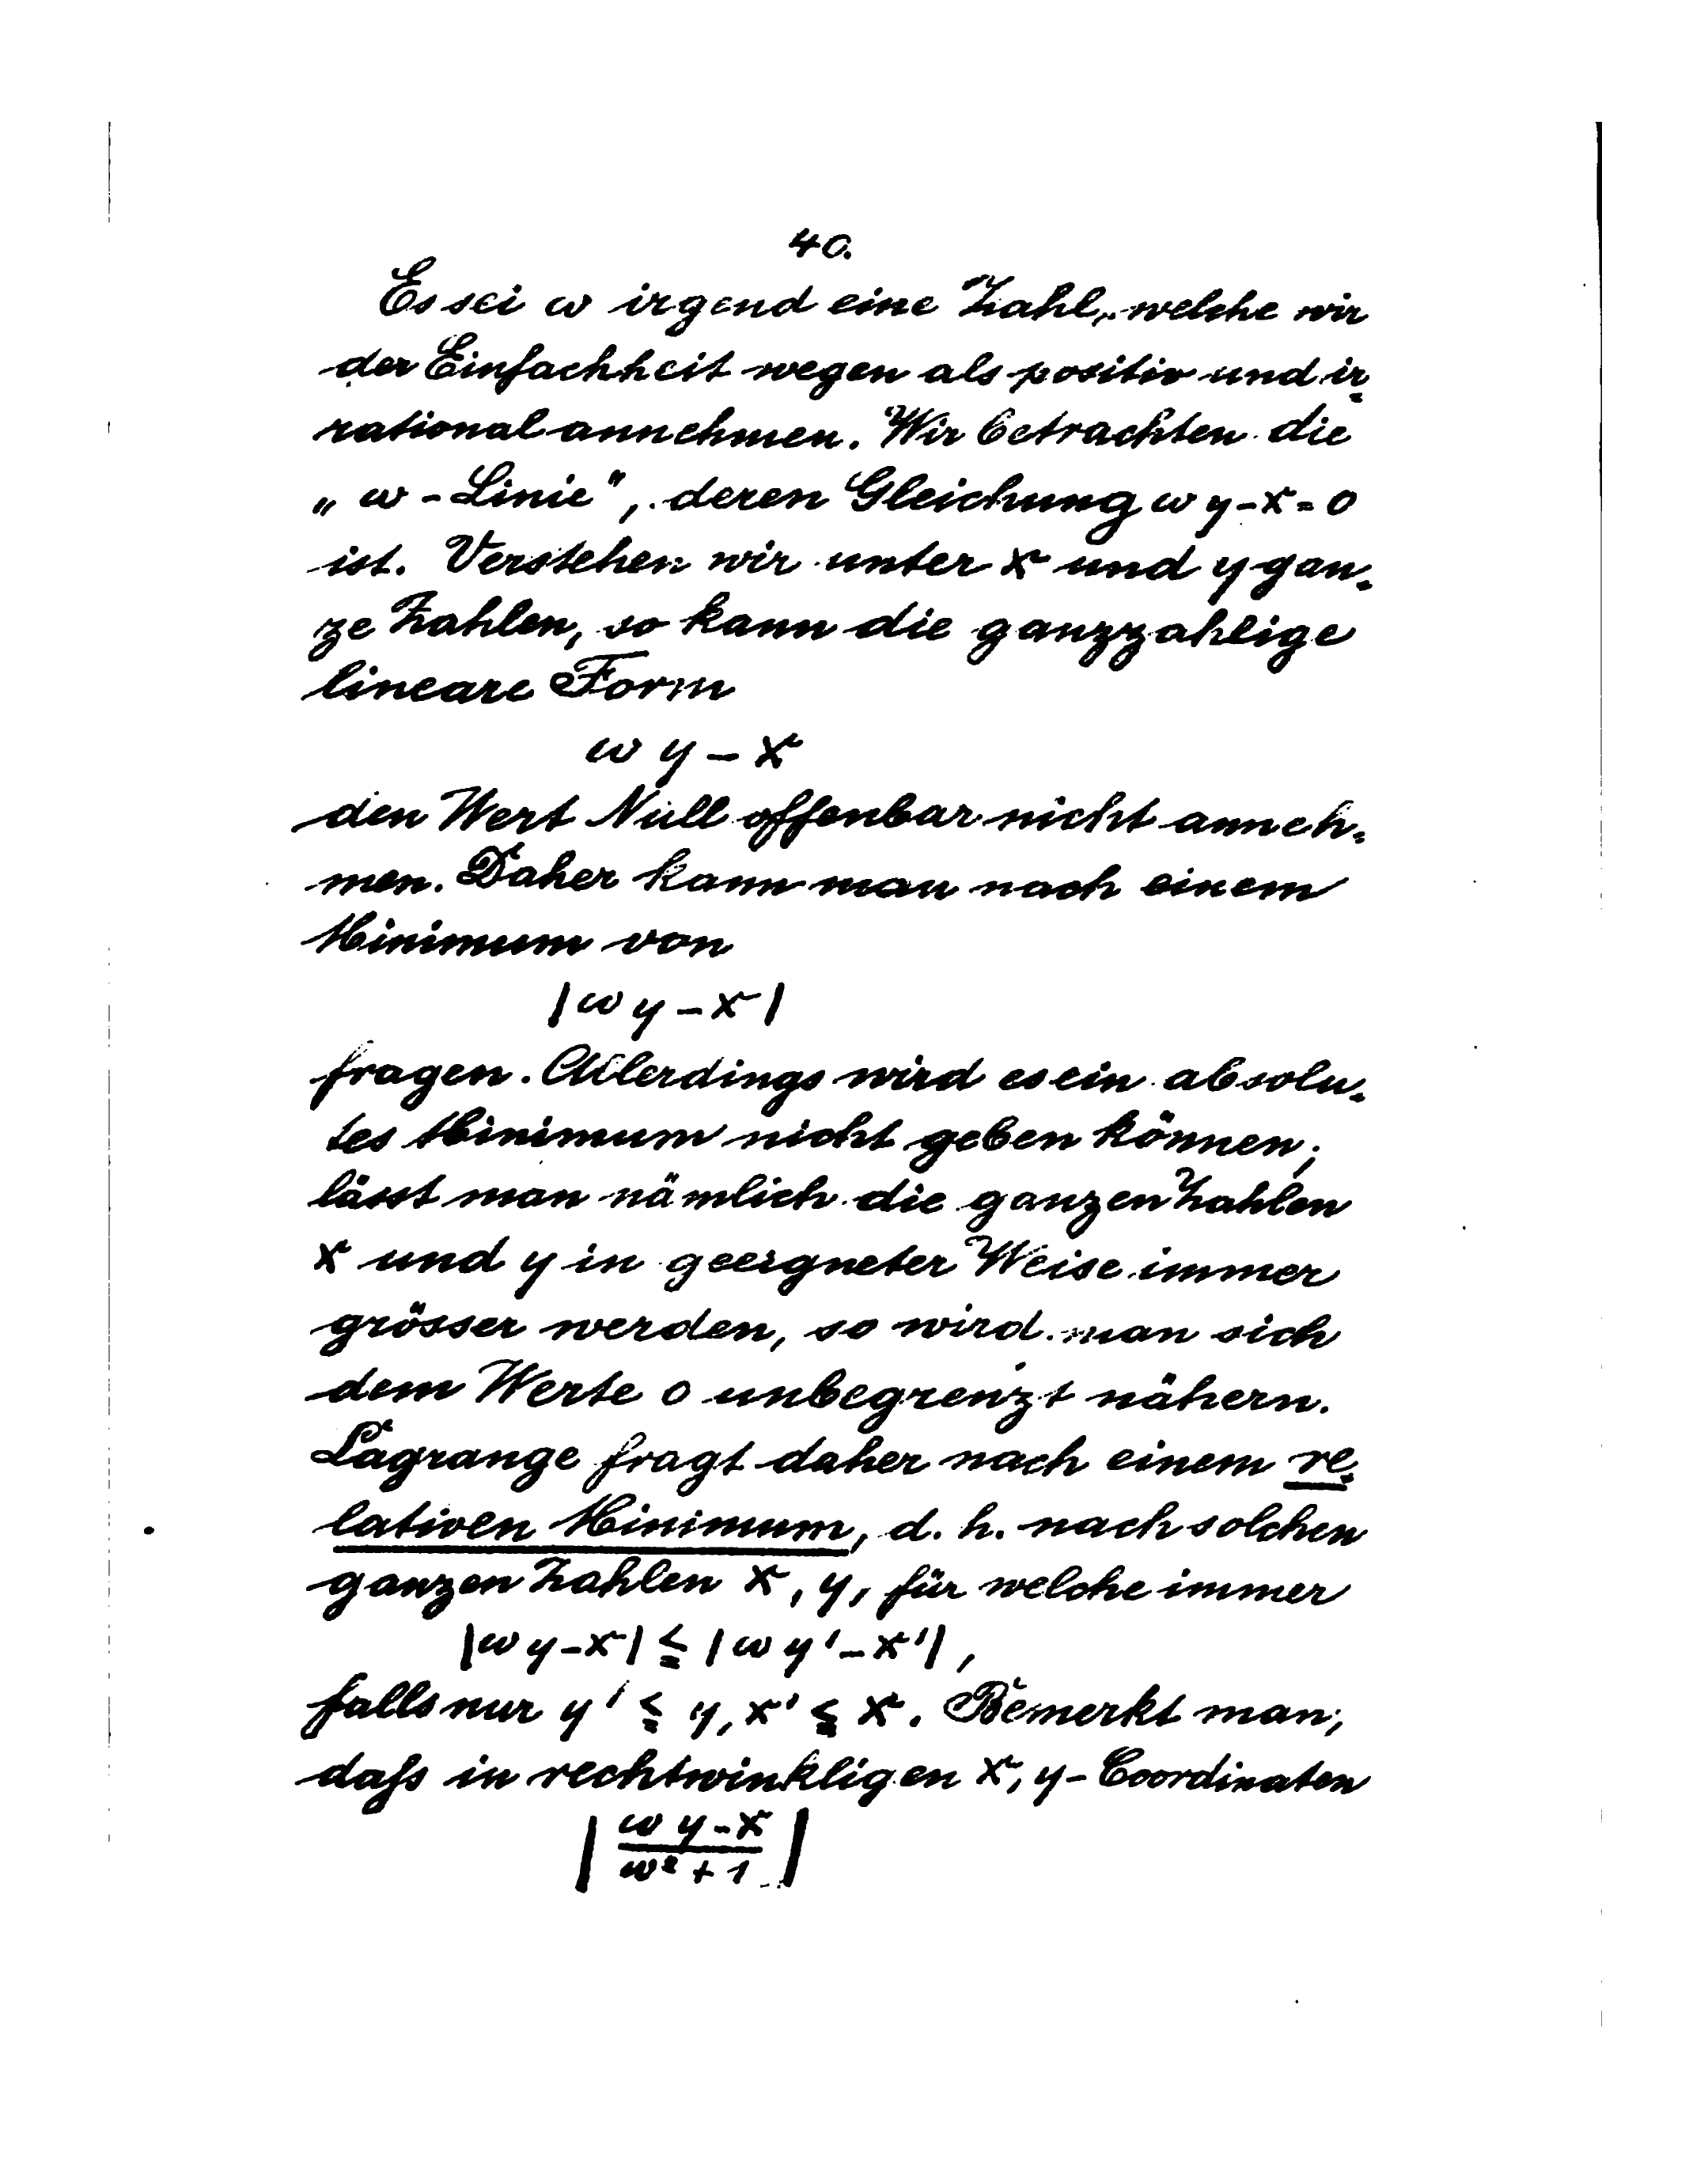 40.
Es sei ω irgend eine Zahl, welche wir
der Einfachheit wegen als positiv und ir-
rational annehmen. Wir betrachten die
„ω-Linie", deren Gleichung ω y - x = 0
ist. Verstehen wir unter x und y gan-
ze Zahlen, so kann die ganzzahlige
lineare Form
ω y - x
den Wert Null offenbar nicht anneh-
men. Daher kann man nach einem
Minimum von
|ω y - x|
fragen. Allerdings wird es ein absolu-
tes Minimum nicht geben können;
lässt man nämlich die ganzen Zahlen
x und y in geeigneter Weise immer
grösser werden, so wird man sich
dem Werte 0 unbegrenzt nähern.
Lagrange fragt daher nach einem re-
lativen Minimum, d. h. nach solchen
ganzen Zahlen x, y, für welche immer
|ω y - x| ≦ |ω y' - x'|,
falls nur y' ≦ y, x' ≦ x. Bemerkt man,
daſs in rechtwinkligen x, y-Coordinaten
| ω y - x / ω² + 1 |